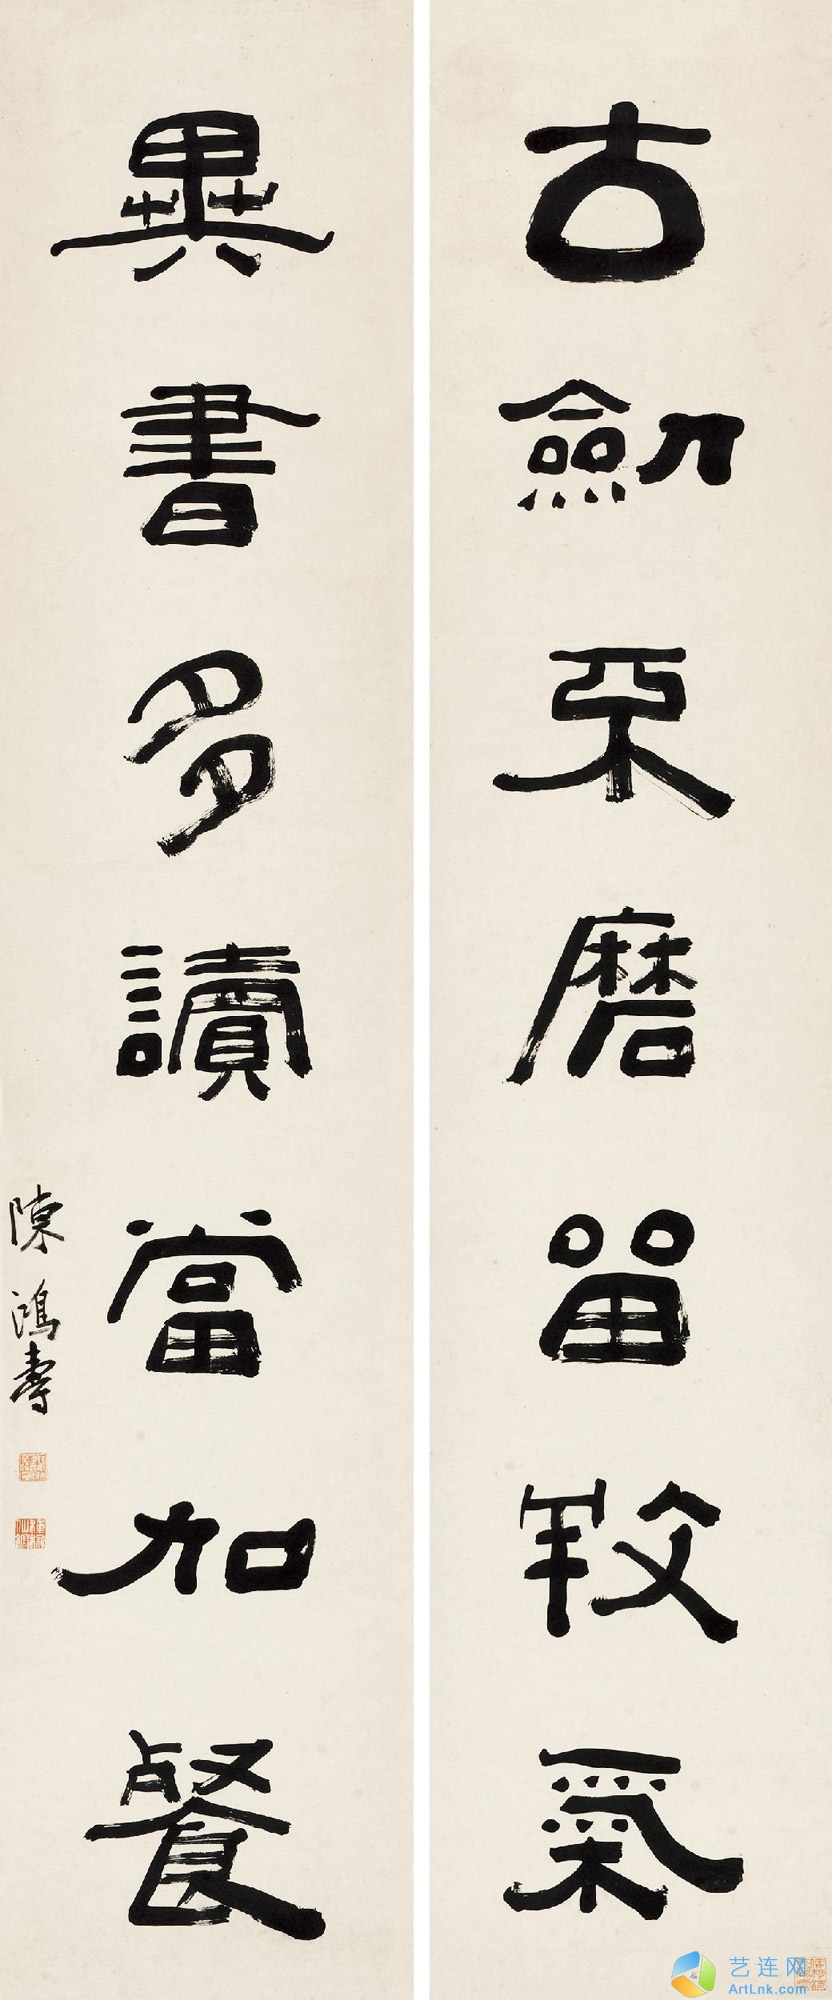 古劍不磨留殺氣
異書多讀當加餐
陳鴻壽
艺连网
ArtLnk.com